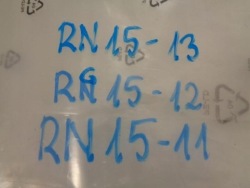 RN 15-13
RN 15-12
RN 15-11